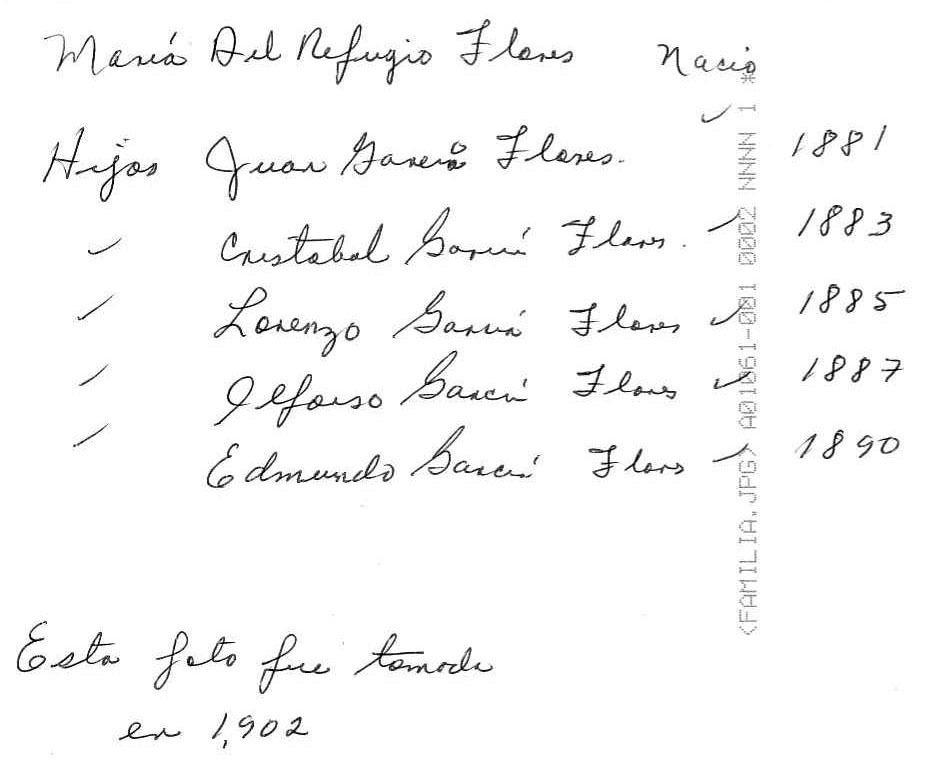 María Del Refugio Flores Nació
Hijos Juan García Flores. ✓ 1881
✓ Cristobal García Flores. ✓ 1883
✓ Lorenzo García Flores ✓ 1885
✓ Alfonso García Flores ✓ 1887
✓ Edmundo García Flores ✓ 1890
Esta foto fue tomada
en 1,902
<FAMILIA.JPG> A01061-001 0002 NNNN 1 *